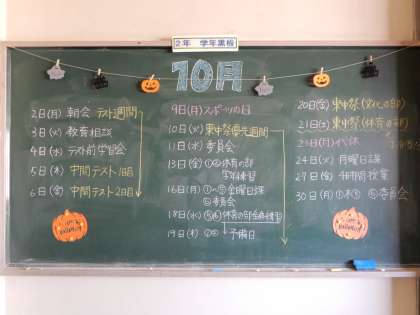 2年 学年黒板
10月
2日(月) 朝会 テスト週間
3日(火) 教育相談
4日(水) テスト前学習会
5日(木) 中間テスト1日目
6日(金) 中間テスト2日目
9日(月) スポーツの日
10日(火) 東中祭優先週間
11日(水) 委員会
13日(金) ①④体育の部
学年練習
16日(月) ①~⑤金曜日課
⑥委員会
18日(水) ⑤⑥体育の部全体練習
19日(木) 予備日
20日(金) 東中祭(文化の部)
21日(土) 東中祭(体育の部)
23日(月) 代休
24日(火) 月曜日課
27日(金) 4時間授業
30日(月) ⑥委員会